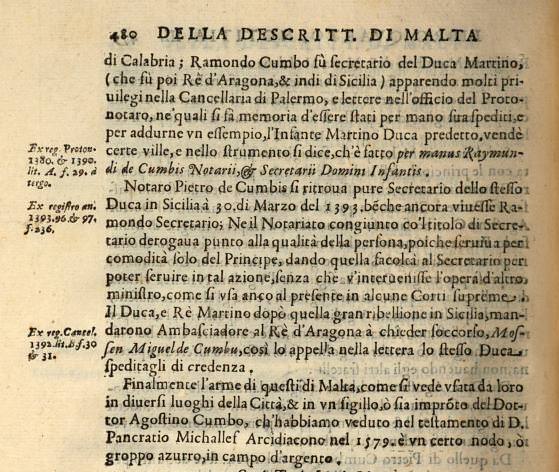 480 DELLA DESCRITT. DI MALTA
di Calabria; Ramondo Cumbo fù secretario del Duca Martino,
(che fù poi Rè d'Aragona, & indi di Sicilia) apparendo molti pri-
uilegi nella Cancellaria di Palermo, e lettere nell'officio del Proto-
notaro, ne'quali si fà memoria d'essere stati per mano sua spediti, e
per addurne vn essempio, l'Infante Martino Duca predetto, vendè
certe ville, e nello strumento si dice, ch'è fatto per manus Raymun-
di de Cumbis Notarii, & Secretarii Domini Infantis.
Ex reg. Proton.
1380. & 1390.
lit. A. f. 29. à
tergo.
Notaro Pietro de Cumbis si ritroua pure Secretario dello stesso
Duca in Sicilia à 30. di Marzo del 1393. bēche ancora viuesse Ra-
mondo Secretario; Ne il Notariato congiunto co'l titolo di Secre-
tario derogaua punto alla qualità della persona, poiche seruiua per
comodità solo del Principe, dando quella facoltà al Secretario per
poter seruire in tal azione, senza che v'interuenisse l'opera d'altro
ministro, come si vsa anco al presente in alcune Corti supreme.
Ex registro an.
1393. 96. & 97.
f. 236.
Il Duca, e Rè Martino dopò quella gran ribellione in Sicilia, man-
darono Ambasciadore al Rè d'Aragona à chieder soccorso, Mos-
sen Miguel de Cumbo, così lo appella nella lettera lo stesso Duca
speditagli di credenza.
Ex reg. Cancel.
1392. lit. B. f. 30
& 31.
Finalmente l'arme di questi di Malta, come si vede vsata da loro
in diuersi luoghi della Città, & in vn sigillo, ò sia imprōto del Dot-
tor Agostino Cumbo, ch'habbiamo veduto nel testamento di D.
Pancratio Michallef Arcidiacono nel 1579. è vn certo nodo, ò
groppo azurro, in campo d'argento.